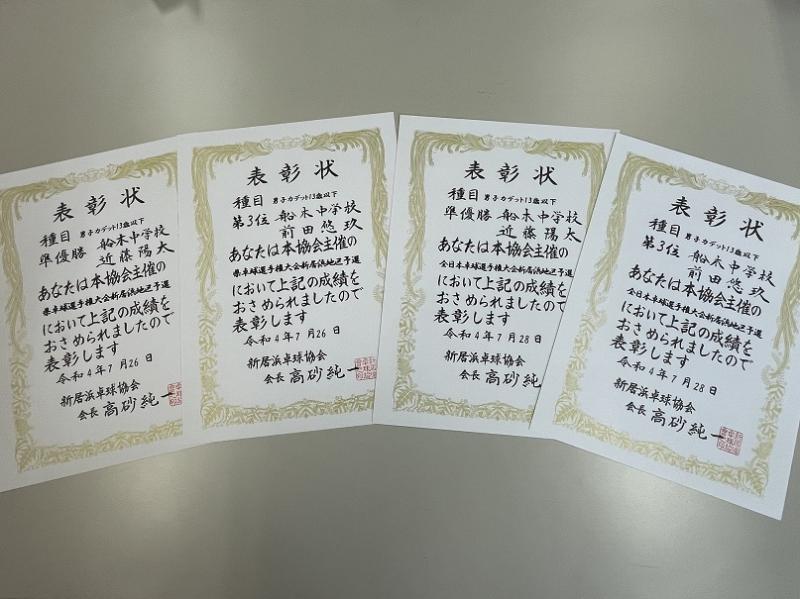 表彰状
種目 男子カデット13歳以下
準優勝 船木中学校
近藤陽太
あなたは本協会主催の
県卓球選手権大会新居浜地区予選
において上記の成績を
おさめられましたので
表彰します
令和4年7月26日
新居浜卓球協会
会長 高砂純一
表彰状
種目 男子カデット13歳以下
第3位 船木中学校
前田悠玖
あなたは本協会主催の
県卓球選手権大会新居浜地区予選
において上記の成績を
おさめられましたので
表彰します
令和4年7月26日
新居浜卓球協会
会長 高砂純一
表彰状
種目 男子カデット13歳以下
準優勝 船木中学校
近藤陽太
あなたは本協会主催の
全日本卓球選手権大会新居浜地区予選
において上記の成績を
おさめられましたので
表彰します
令和4年7月28日
新居浜卓球協会
会長 高砂純一
表彰状
種目 男子カデット13歳以下
第3位 船木中学校
前田悠玖
あなたは本協会主催の
全日本卓球選手権大会新居浜地区予選
において上記の成績を
おさめられましたので
表彰します
令和4年7月28日
新居浜卓球協会
会長 高砂純一